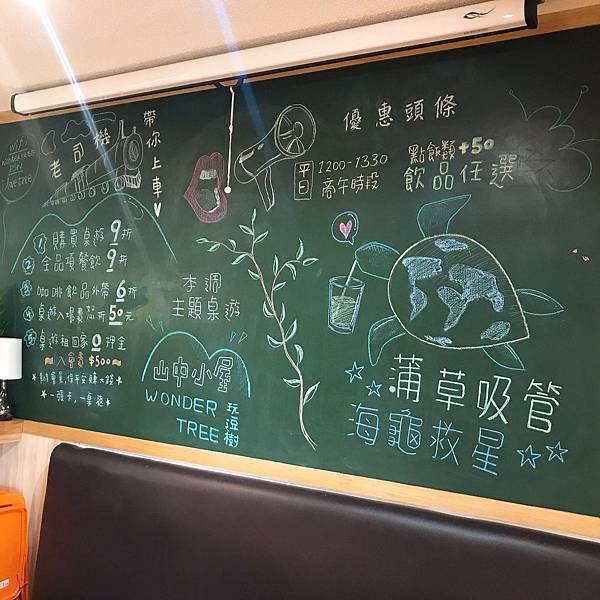 老司機
帶你上車
① 購買桌遊 9 折
② 全品項餐飲 9 折
③ 咖啡飲品外帶 6 折
④ 桌遊入場費 折 50 元
⑤ 桌遊租回家 0 押金
入會費 $500
本週
主題桌遊
山中小屋
WONDER
TREE
玩逗樹
優惠頭條
平日
1200-1330
商午時段
點飯類+50
飲品任選
蒲草吸管
海龜救星